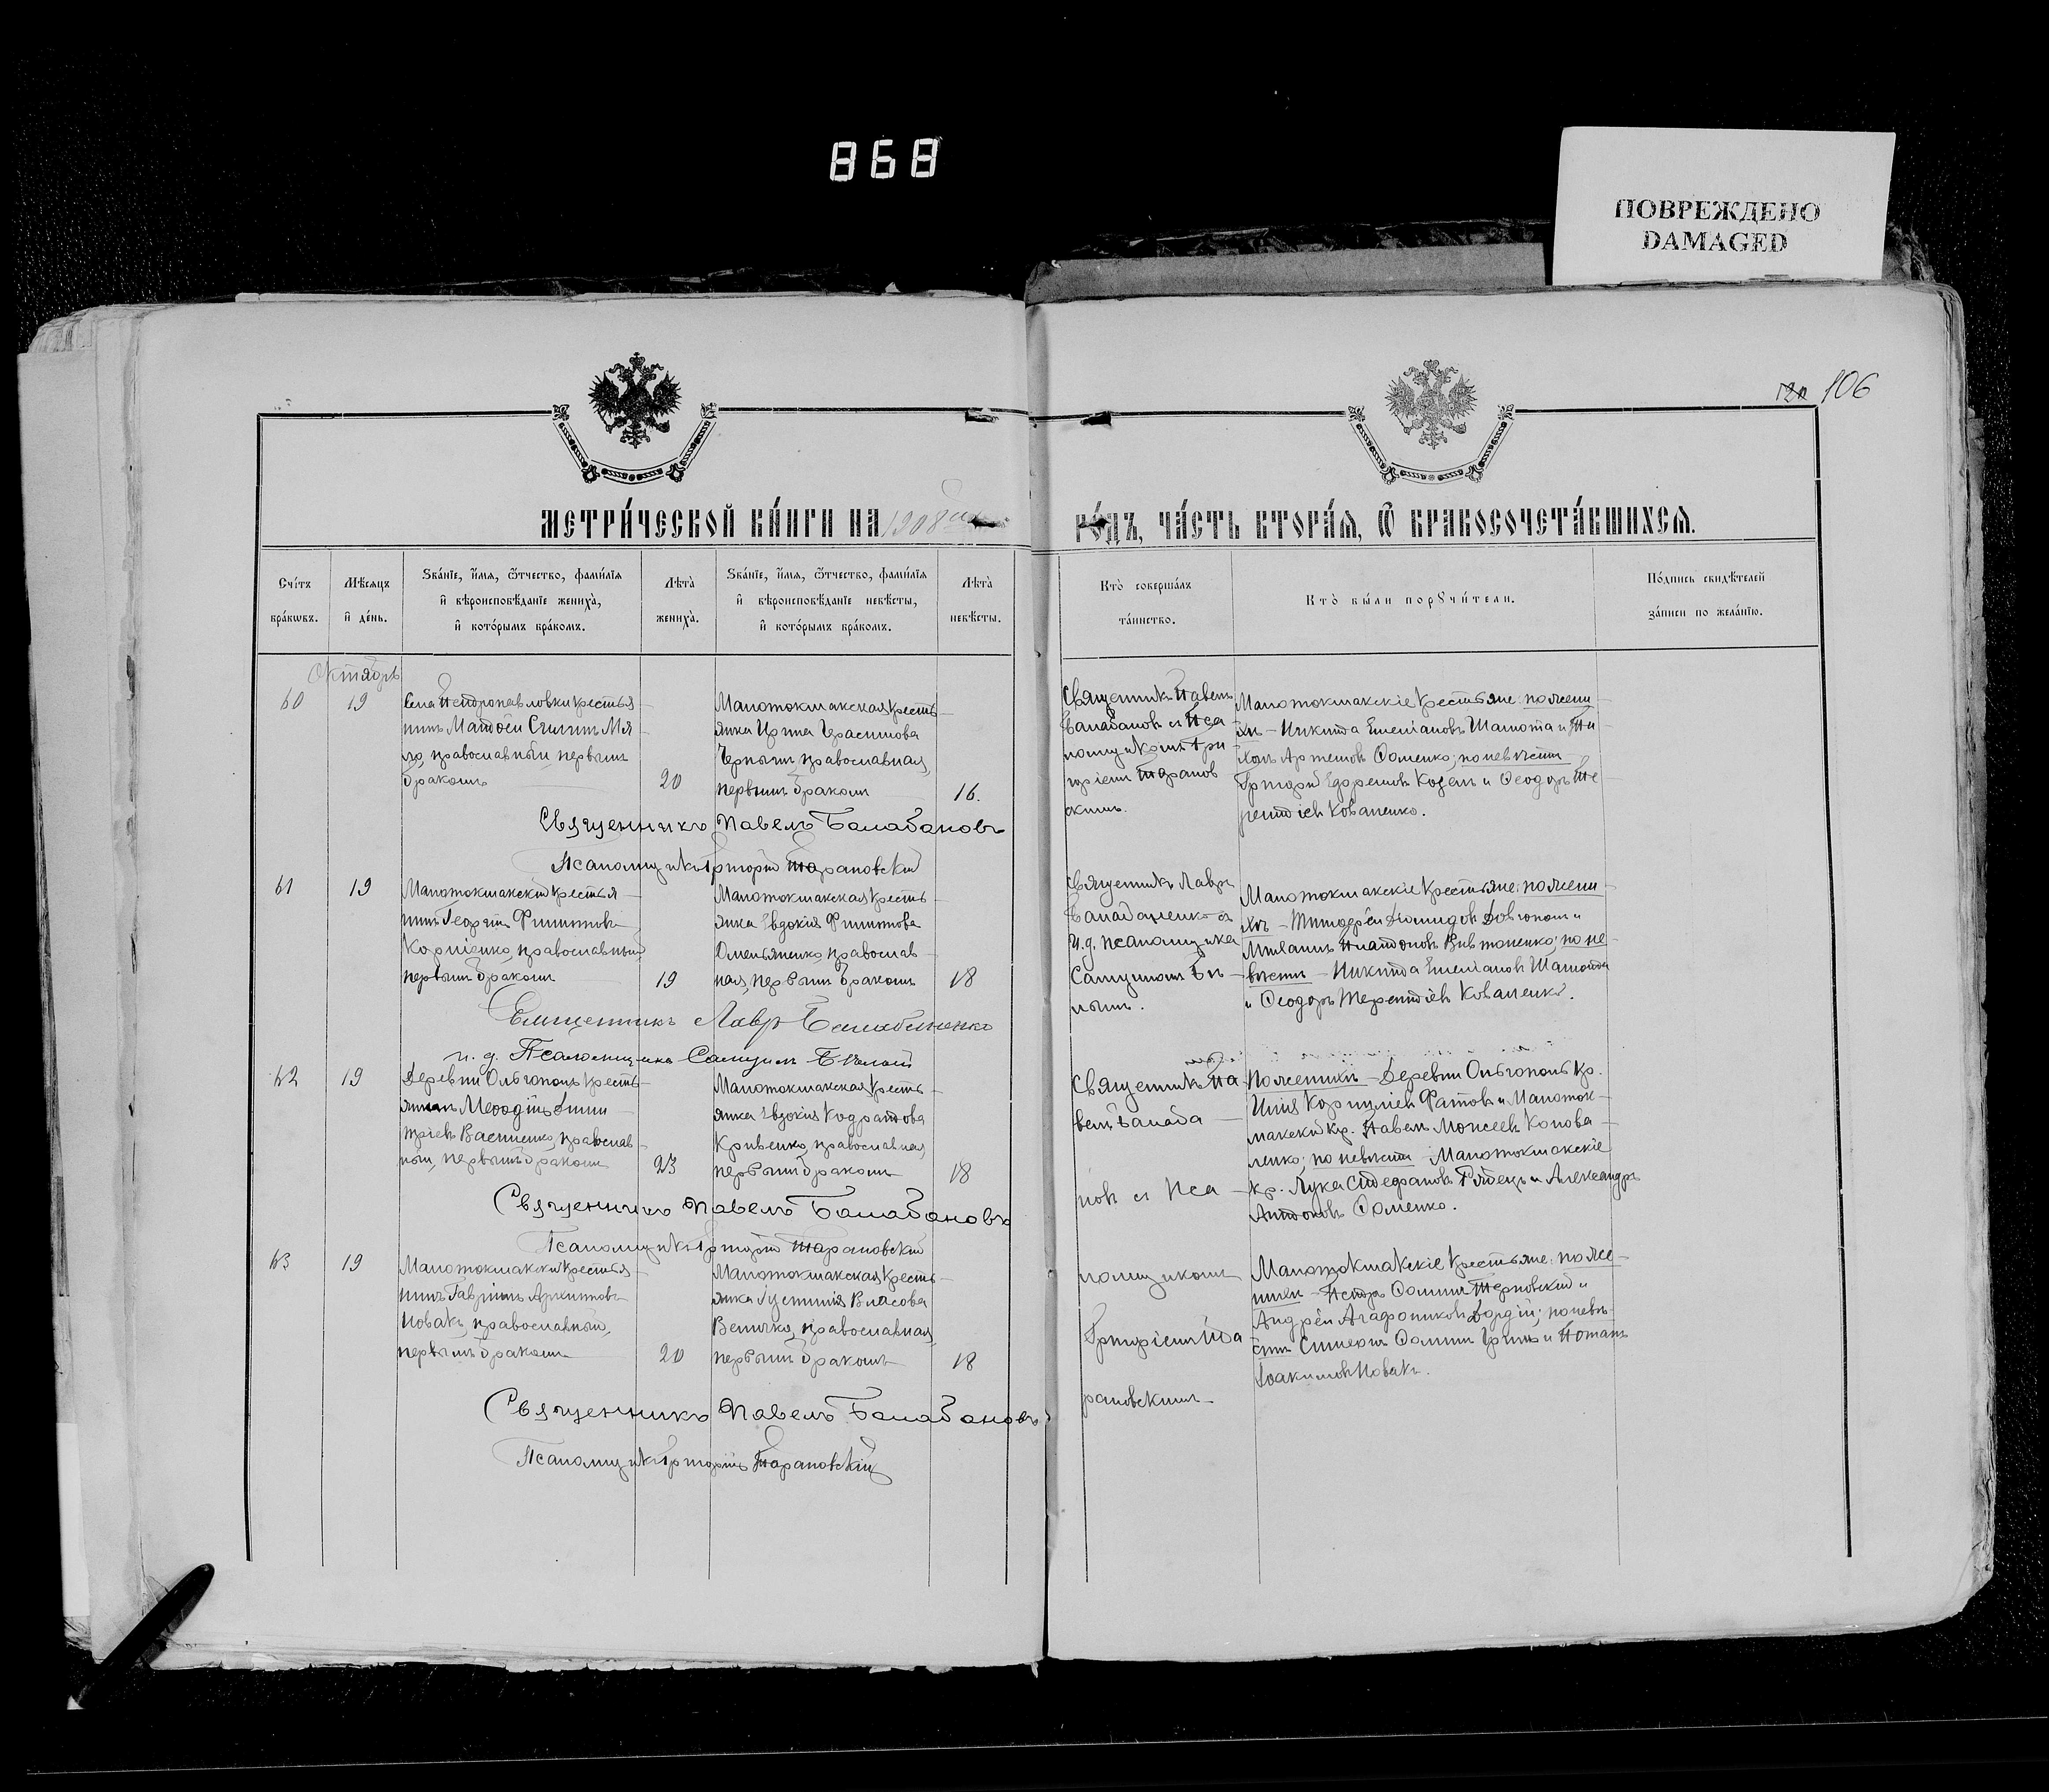 868
ПОВРЕЖДЕНО
DAMAGED
106
МЕТРИ́ЧЕСКОЙ КНИ́ГИ НА 1908
ГО́ДЪ, ЧА́СТЬ ВТОРА́Я, Ѿ БРАКОСОЧЕТА́ВШИХСЯ.
Сче́тъ бра́кѡвъ.
Мѣ́сяцъ и҆ де́нь.
Ѕва́нїе, и҆́мя, ѻ҆́тчество, фами́лїя
и҆ вѣроисповѣ́данїе жениха̀,
и҆ кото́рымъ бра́комъ.
Лѣ́та̀ жениха̀.
Ѕва́нїе, и҆́мя, ѻ҆́тчество, фами́лїя
и҆ вѣроисповѣ́данїе невѣ́сты,
и҆ кото́рымъ бра́комъ.
Лѣ́та̀ невѣ́сты.
Кто̀ соверша́лъ
та́инство.
Кто̀ бы́ли порꙋчи́тели.
По́дпись свидѣ́телей
за́писи по жела́нїю.
Октябрь
60
19
Села Петропавловки крестья
нинъ Матѳей
православный первымъ
бракомъ
20
Малотокмакская кресть
янка Ирина Герасимова
православная,
первымъ бракомъ
16.
Священникъ Павелъ
Балабановъ и Пса
ломщикомъ Гри
горіемъ Таранов
скимъ.
Малотокмакскіе крестьяне: по жени
хѣ – Никита Емеліановъ Шамота и Ти
хонъ Артемовъ Ѳоменко; по невѣстѣ
Григорій и Ѳеодоръ Те
рентіевъ Коваленко.
Священникъ Павелъ Балабановъ
Псаломщикъ Григорій Тарановскій
61
19
Малотокмакскій крестья
нинъ Георгій Филиппов
Корніенко, православный
первымъ бракомъ
19
Малотокмакская кресть
янка Евдокія Филиппова
Омельяненко, православ
ная, первымъ бракомъ
18
Священникъ Лавръ
Балабаненко съ
и.д. псаломщика
Самуиломъ Бѣ
лымъ.
Малотокмакскіе крестьяне: по жени
хѣ – Тимоѳей Діомидовъ Довгопол и
Михаилъ Платоновъ; по не
вѣстѣ – Никита Емеліановъ Шамота
и Ѳеодоръ Терентіевъ Коваленко.
Священникъ Лавръ Балабаненко
и. д. Псаломщика Самуилъ Бѣлый
62
19
Деревни Ольгополь кресть
янинъ Меѳодій Дими
тріевъ Василенко, православ
ный, первымъ бракомъ
23
Малотокмакская кресть
янка Евдокія Кодратова
Кривенко, православная
первымъ бракомъ
18
Священникъ Па
велъ Балаба
новъ съ Пса
По женихѣ – Деревни Ольгополь кр.
Илія Корниліевъ Фатовъ и Малоток
макскій кр. Павелъ Моисеевъ Конова
ленко; по невѣстѣ Малотокмакскіе
кр. Лука Стефановъ и Александръ
Антоновъ Ѳоменко.
Священникъ Павелъ Балабановъ
Псаломщикъ Григорій Тарановскій
63
19
Малотокмакскій крестья
нинъ Гавріилъ Архиповъ
Новакъ, православный,
первымъ бракомъ
20
Малотокмакская кресть
янка Іустинія Власова
Величко, православная,
первымъ бракомъ
18
ломщикомъ
Григоріемъ Та
рановскимъ
Малотокмакскіе крестьяне: по же
нихѣ – Петръ Ѳоминъ Терновскій и
Андрей Агафониковъ; по невѣ
стѣ Симеонъ Ѳоминъ и Потапъ
Іоакимовъ Новакъ.
Священникъ Павелъ Балабановъ
Псаломщикъ Григорій Тарановскій